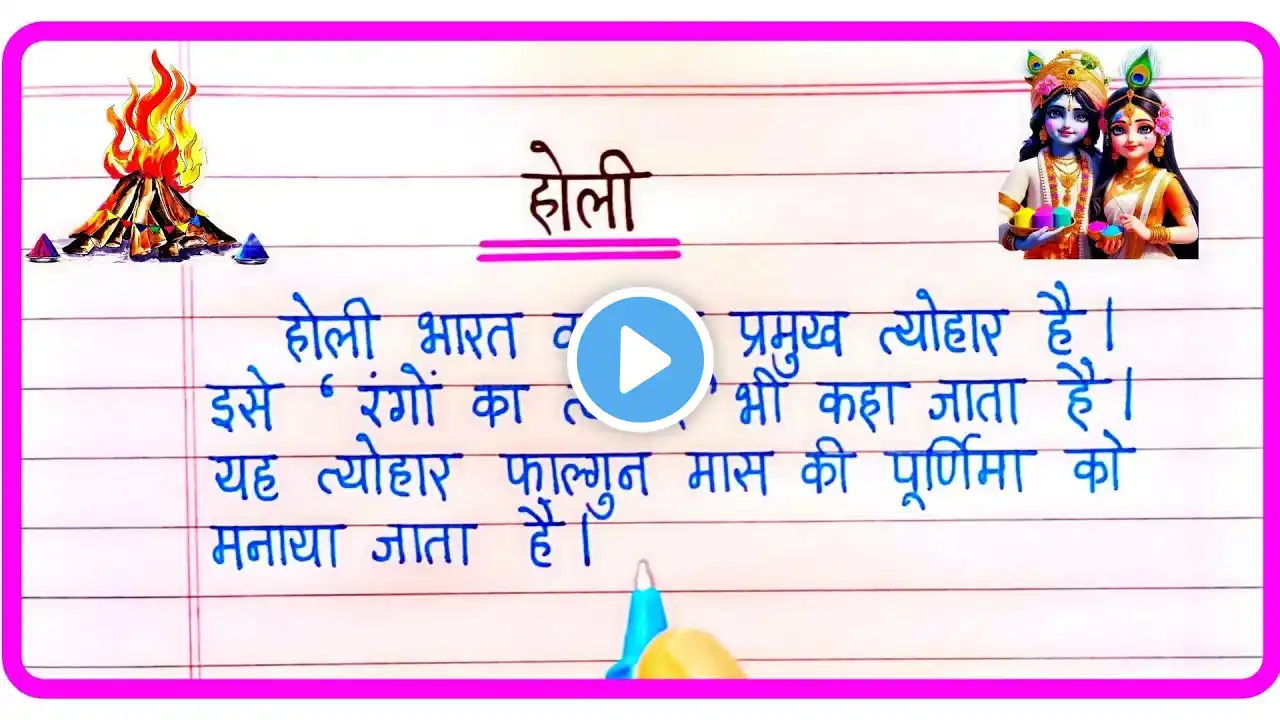 होली
होली भारत प्रमुख त्योहार है।
इसे ‘रंगों का भी कहा जाता है।
यह त्योहार फाल्गुन मास की पूर्णिमा को
मनाया जाता है।